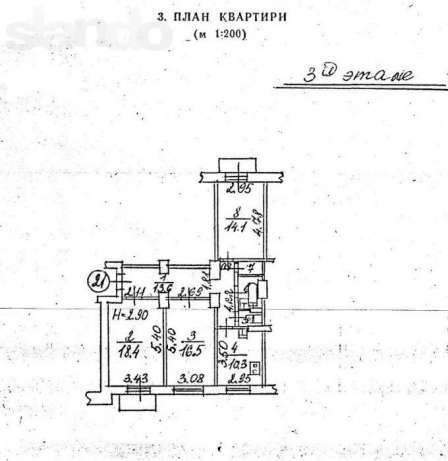 stando
3. ПЛАН КВАРТИРИ
(м 1:200)
3й этаже
2.95
8
14.1
4.78
7
21
1
13.6
1.21
2.11
2.69
1.22
H=2.90
2
18.4
5.40
5.40
3
16.5
3.50
4
10.3
3.43
3.08
2.95